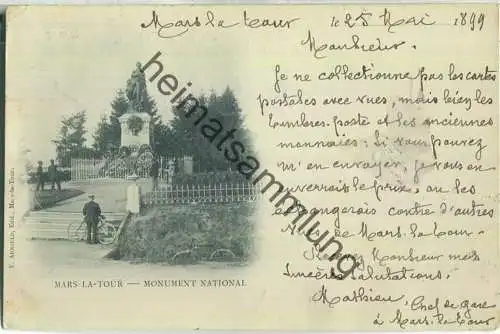 Mars la Tour le 25 Mai 1899
Monsieur.
Je ne collectionne pas les cartes
postales avec vues, mais bien les
timbres-poste et les anciennes
monnaies; Si vous pouvez
m'en envoyer, je vous en
enverrais le prix, ou les
échangerais contre d'autres
Vues de Mars-la-Tour.
Recevez Monsieur mes
sincères salutations,
Mathieu, Chef de gare
à Mars-la-Tour
MARS-LA-TOUR — MONUMENT NATIONAL
Édit., Mars-la-Tour.
heimatsammlung.de